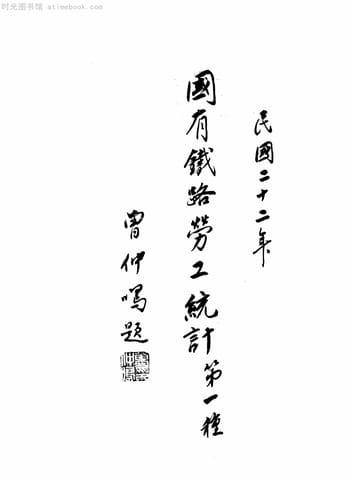 时光图书馆 atimebook.com
民國二十二年
國有鐵路勞工統計第一種
曾仲鳴題